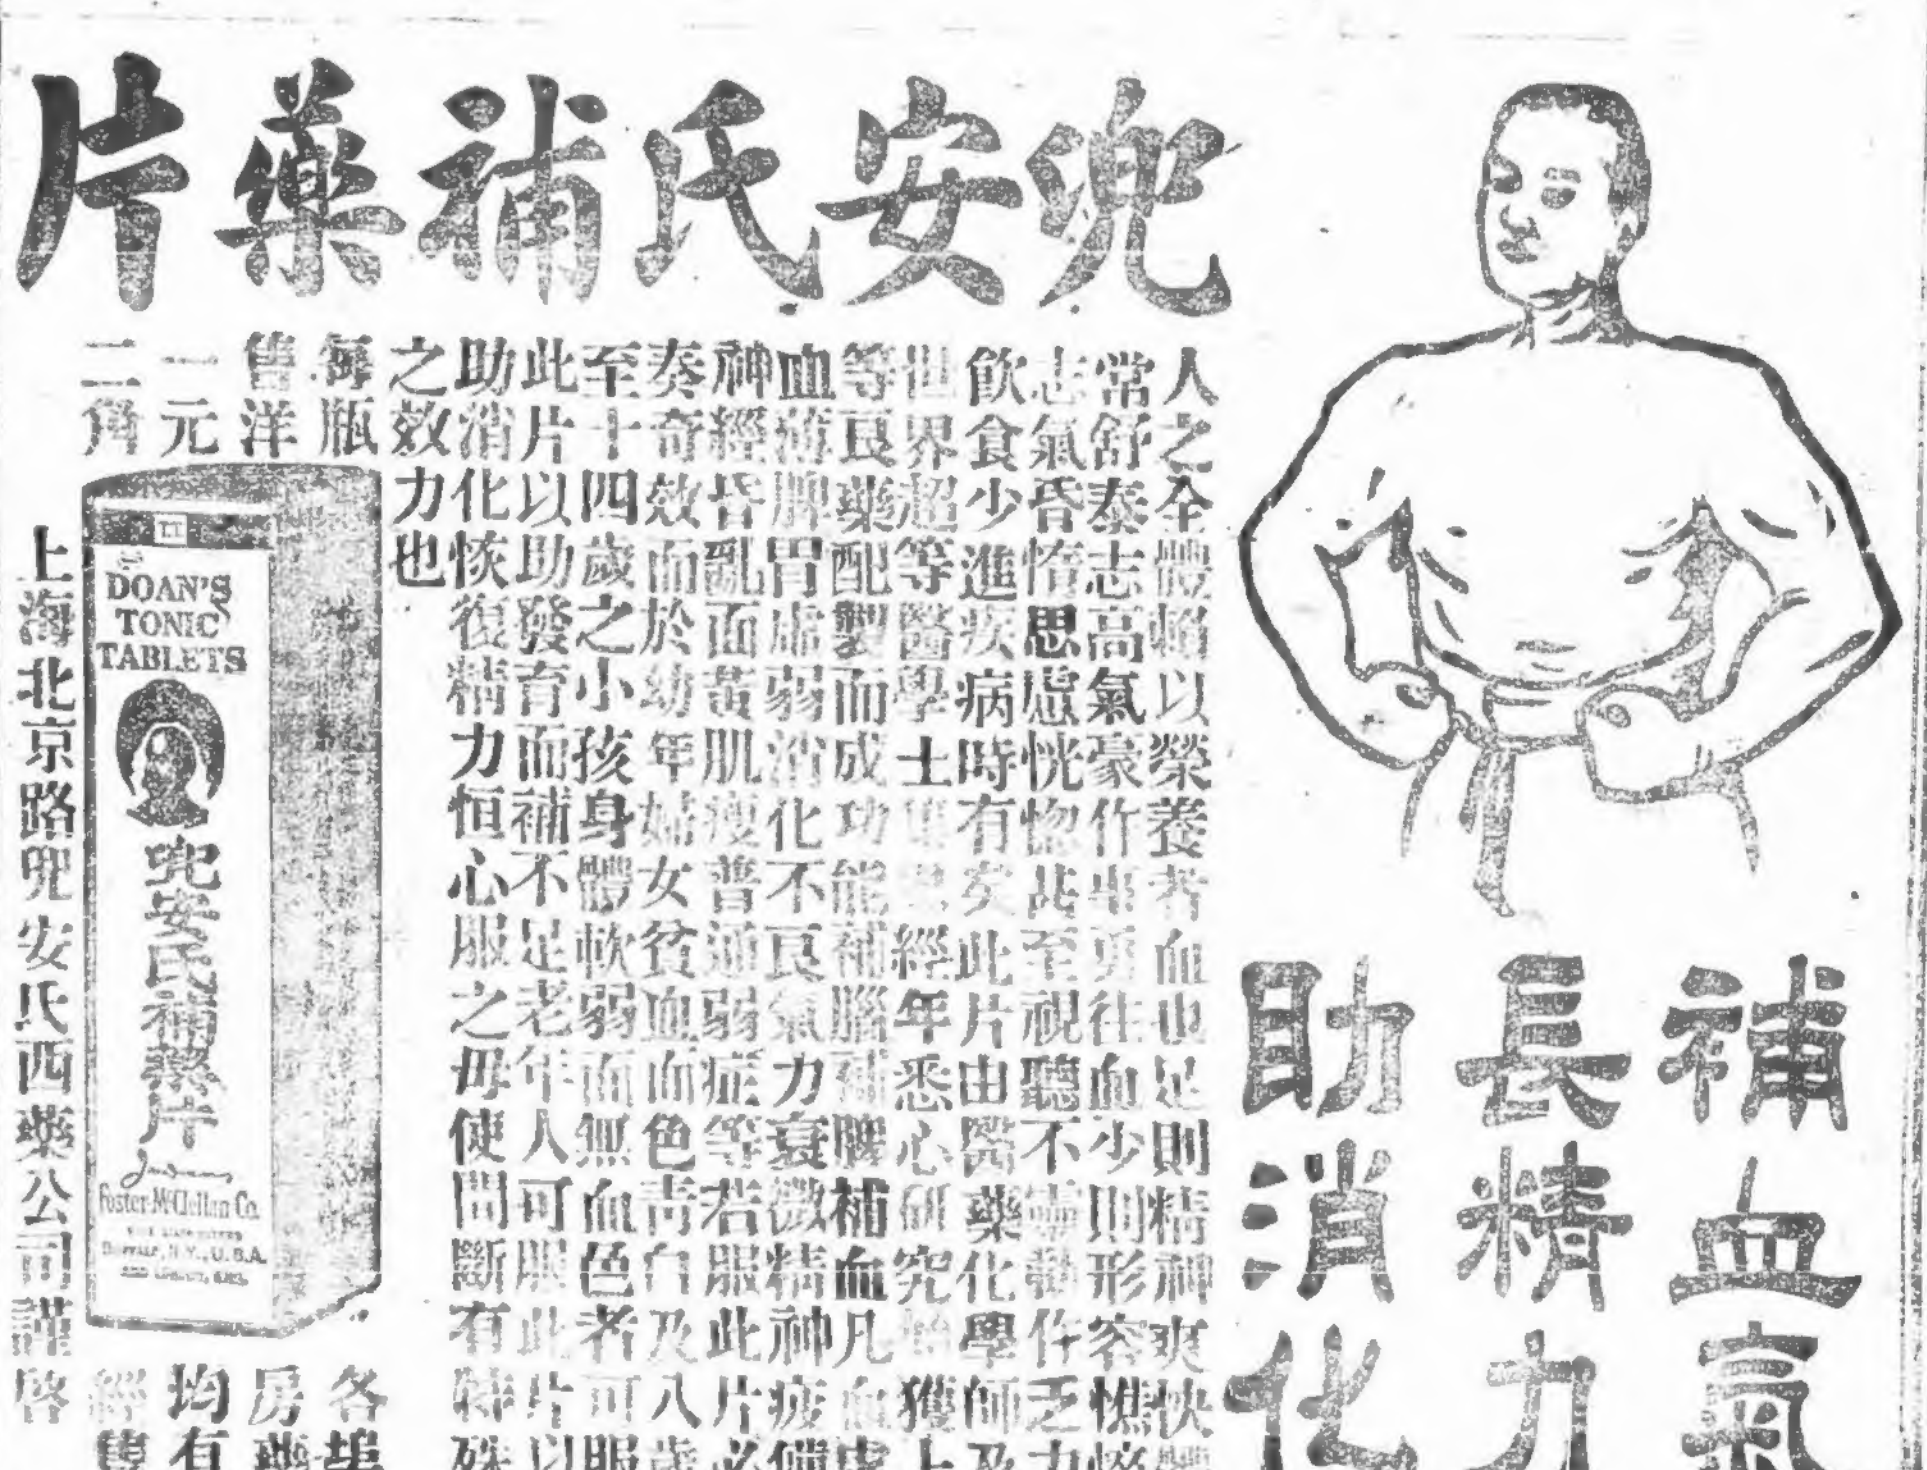 兜安氏補藥片
補血氣
長精力
助消化
人之全體賴以榮養者血也足則精神爽快體
常舒泰志高氣豪作事勇往血少則形容憔悴
志氣昏惰思慮恍惚甚至視聽不靈動作乏力
飲食少進疾病時有矣此片由醫藥化學師及
世界超等醫學士經年悉心研究始獲上
等良藥配製而成功能補腦補髓補血凡血虛
血薄脾胃虛弱消化不良氣力衰微精神疲憊
神經昏亂面黃肌瘦普通弱症等若服此片必
奏奇效而於幼年婦女貧血而色青白及八歲
至十四歲之小孩身體軟弱面無血色者可服
此片以助發育而補不足老年人可服此片以
助消化恢復精力恒心服之毋使間斷有特殊
之效力也
每瓶
售洋
一元
二角
DOAN'S
TONIC
TABLETS
兜安氏補藥片
Foster-McClellan Co.
BUFFALO, N.Y., U.S.A.
各埠
房藥
均有
經售
上海北京路兜安氏西藥公司謹啓